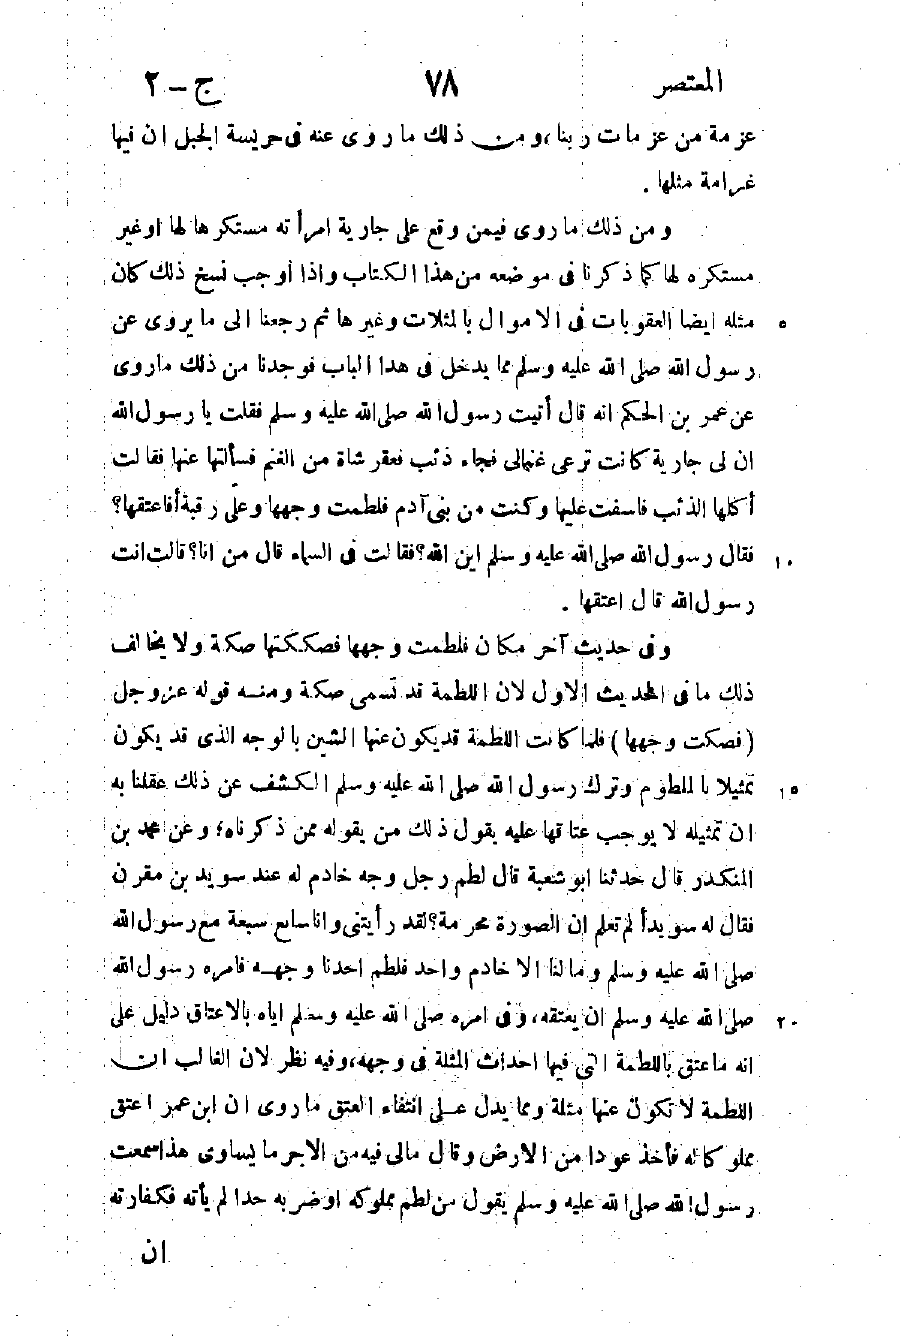 المعتصر ٧٨ ج - ٢
عزمة من عزمات ربنا، ومن ذلك ما روى عنه فى حريسة الجبل ان فيها
غرامة مثلها .
ومن ذلك ما روى فيمن وقع على جارية امرأته مستكرها لها او غير
مستكره لها كما ذكرنا فى موضعه من هذا الكتاب واذا أوجب نسخ ذلك كان
مثله ايضا العقوبات فى الاموال بالمثلات وغيرها ثم رجعنا الى ما يروى عن ٥
رسول الله صلى الله عليه وسلم مما يدخل فى هدا الباب فوجدنا من ذلك ماروى
عن عمر بن الحكم انه قال أتيت رسول الله صلى الله عليه وسلم فقلت يا رسول الله
ان لى جارية كانت ترعى غنمالى فجاء ذئب فعقر شاة من الغنم فسألتها عنها فقالت
أكلها الذئب فاسفت عليها وكنت من بنى آدم فلطمت وجهها وعلىّ رقبة أفاعتقها؟
فقال رسول الله صلى الله عليه وسلم اين الله؟ فقالت فى السماء قال من انا؟ قالت انت ١٠
رسول الله قال اعتقها .
وفى حديث آخر مكان فلطمت وجهها فصككتها صكة ولا يخالف
ذلك ما فى الحديث الاول لان اللطمة قد تسمى صكة ومنه قوله عز وجل
(فصكت وجهها) فلما كانت اللطمة قد يكون عنها الشين بالوجه الذى قد يكون
تمثيلا بالملطوم وترك رسول الله صلى الله عليه وسلم الكشف عن ذلك عقلنا به ١٥
ان تمثيله لا يوجب عتاقها عليه يقول ذلك من يقوله ممن ذكرناه؛ وعن محمد بن
المنكدر قال حدثنا ابو شعبة قال لطم رجل وجه خادم له عند سويد بن مقرن
فقال له سويد أ لم تعلم ان الصورة محرمة؟ لقد رأيتنى وانا سابع سبعة مع رسول الله
صلى الله عليه وسلم ومالنا الا خادم واحد فلطم احدنا وجهه فامره رسول الله
صلى الله عليه وسلم ان يعتقه، وفى امره صلى الله عليه وسلم اياه بالاعتاق دليل على ٢٠
انه ما عتق باللطمة التى فيها احداث المثلة فى وجهه، وفيه نظر لان الغالب ان
اللطمة لا تكون عنها مثلة ومما يدل على انتفاء العتق ما روى ان ابن عمر اعتق
مملوكا له فأخذ عودا من الارض وقال مالى فيه من الاجر ما يساوى هذا سمعت
رسول الله صلى الله عليه وسلم يقول من لطم مملوكه او ضربه حدا لم يأته فكفارته
ان